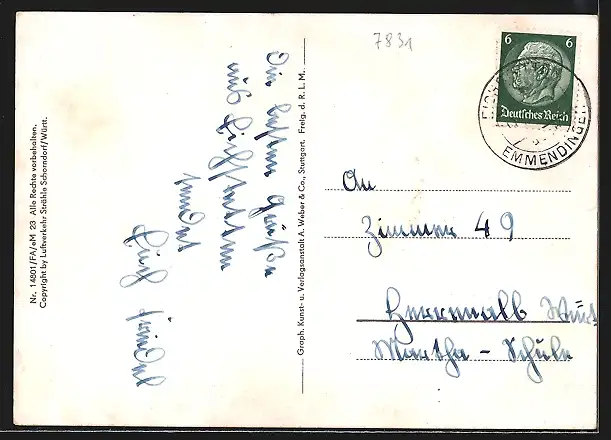 7831
6 6
Deutsches Reich
EMMENDINGEN
An
Zimmer 49
Herrenalb Württ
Martha-Schule
Die besten Grüße
aus
sendet
Nr. 14801/FA/eM 23 Alle Rechte vorbehalten.
Copyright by Luftverkehr Strähle Schorndorf/Württ.
Graph. Kunst- u. Verlagsanstalt A. Weber & Co., Stuttgart. Freig. d. R. L. M.